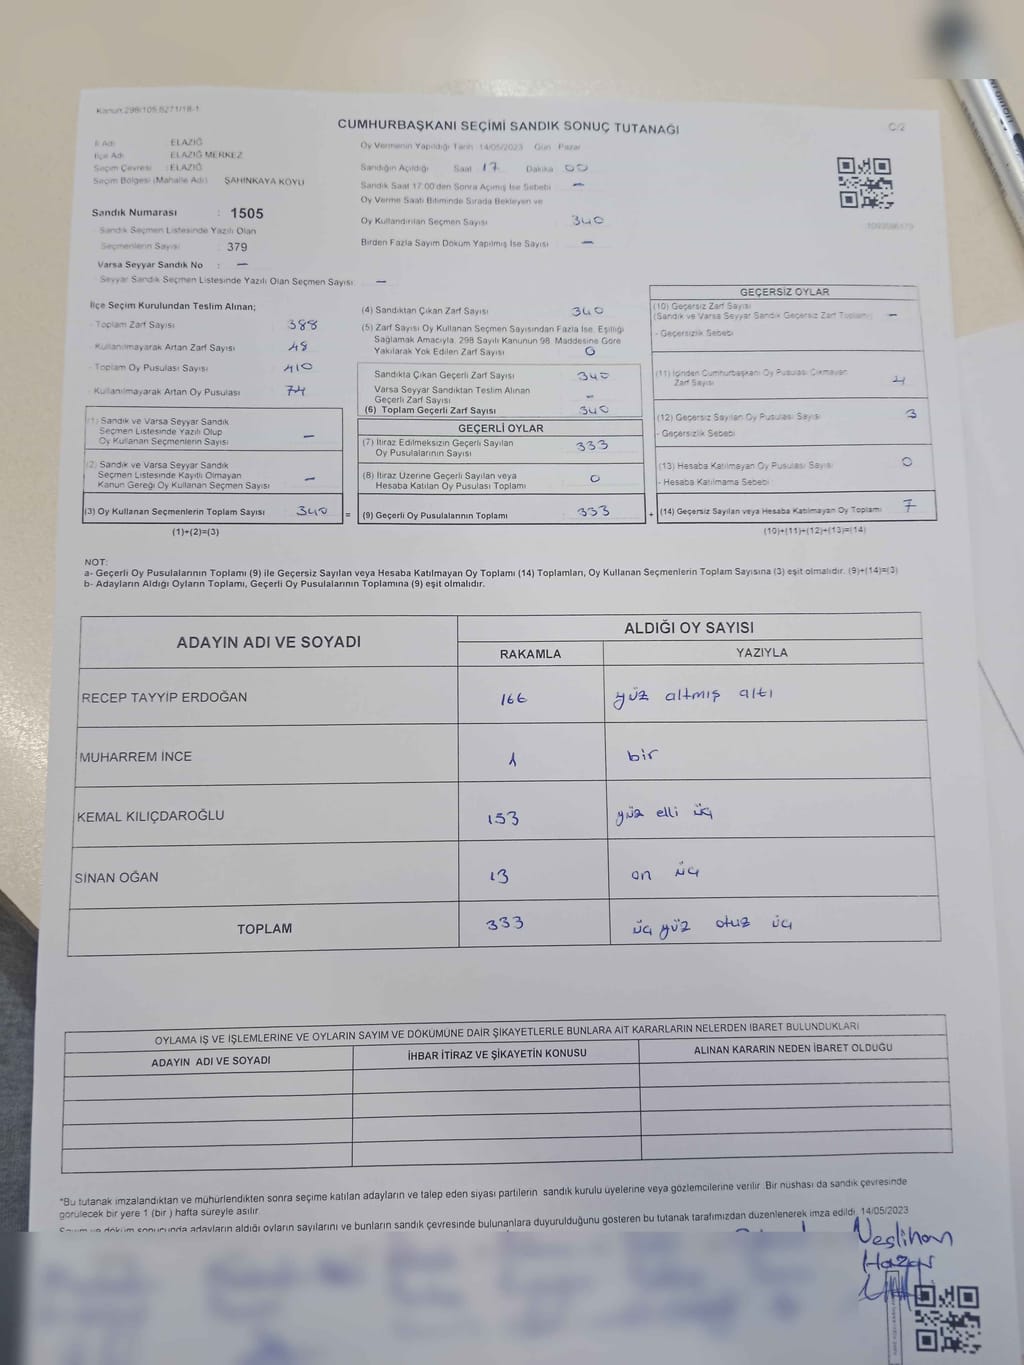 Kanun:298/105,6271/18-1
CUMHURBAŞKANI SEÇİMİ SANDIK SONUÇ TUTANAĞI
C/2
İl Adı ELAZIĞ
İlçe Adı ELAZIĞ MERKEZ
Seçim Çevresi : ELAZIĞ
Seçim Bölgesi (Mahalle Adı) ŞAHINKAYA KOYU
Sandık Numarası : 1505
- Sandık Seçmen Listesinde Yazılı Olan
Seçmenlerin Sayısı : 379
Varsa Seyyar Sandık No : –
- Seyyar Sandık Seçmen Listesinde Yazılı Olan Seçmen Sayısı –
Oy Vermenin Yapıldığı Tarih 14/05/2023 Gün Pazar
Sandığın Açıldığı Saat 17 Dakika 00
Sandık Saat 17.00'den Sonra Açımış İse Sebebi –
Oy Verme Saati Bitiminde Sırada Bekleyen ve
Oy Kullandırılan Seçmen Sayısı 340
Birden Fazla Sayım Döküm Yapılmış İse Sayısı –
İlçe Seçim Kurulundan Teslim Alınan;
- Toplam Zarf Sayısı 388
- Kullanılmayarak Artan Zarf Sayısı 48
- Toplam Oy Pusulası Sayısı 410
- Kullanılmayarak Artan Oy Pusulası 74
(1) Sandık ve Varsa Seyyar Sandık
Seçmen Listesinde Yazılı Olup
Oy Kullanan Seçmenlerin Sayısı –
(2) Sandık ve Varsa Seyyar Sandık
Seçmen Listesinde Kayıtlı Olmayan
Kanun Gereği Oy Kullanan Seçmen Sayısı –
(3) Oy Kullanan Seçmenlerin Toplam Sayısı 340 =
(1)+(2)=(3)
(4) Sandıktan Çıkan Zarf Sayısı 340
(5) Zarf Sayısı Oy Kullanan Seçmen Sayısından Fazla İse, Eşitliği
Sağlamak Amacıyla, 298 Sayılı Kanunun 98. Maddesine Göre
Yakılarak Yok Edilen Zarf Sayısı 0
Sandıkta Çıkan Geçerli Zarf Sayısı 340
Varsa Seyyar Sandıktan Teslim Alınan
Geçerli Zarf Sayısı –
(6) Toplam Geçerli Zarf Sayısı 340
GEÇERLİ OYLAR
(7) İtiraz Edilmeksizin Geçerli Sayılan
Oy Pusulalarının Sayısı 333
(8) İtiraz Üzerine Geçerli Sayılan veya
Hesaba Katılan Oy Pusulası Toplamı 0
(9) Geçerli Oy Pusulalarının Toplamı 333 +
GEÇERSİZ OYLAR
(10) Geçersiz Zarf Sayısı
(Sandık ve Varsa Seyyar Sandık Geçersiz Zarf Toplamı) –
- Geçersizlik Sebebi
(11) İçinden Cumhurbaşkanı Oy Pusulası Çıkmayan
Zarf Sayısı 4
(12) Geçersiz Sayılan Oy Pusulası Sayısı 3
- Geçersizlik Sebebi
(13) Hesaba Katılmayan Oy Pusulası Sayısı 0
- Hesaba Katılmama Sebebi
(14) Geçersiz Sayılan veya Hesaba Katılmayan Oy Toplamı 7
(10)+(11)+(12)+(13)=(14)
NOT:
a- Geçerli Oy Pusulalarının Toplamı (9) ile Geçersiz Sayılan veya Hesaba Katılmayan Oy Toplamı (14) Toplamları, Oy Kullanan Seçmenlerin Toplam Sayısına (3) eşit olmalıdır. (9)+(14)=(3)
b- Adayların Aldığı Oyların Toplamı, Geçerli Oy Pusulalarının Toplamına (9) eşit olmalıdır.
ADAYIN ADI VE SOYADI ALDIĞI OY SAYISI
RAKAMLA YAZIYLA
RECEP TAYYİP ERDOĞAN 166 yüz altmış altı
MUHARREM İNCE 1 bir
KEMAL KILIÇDAROĞLU 153 yüz elli üç
SİNAN OĞAN 13 on üç
TOPLAM 333 üç yüz otuz üç
OYLAMA İŞ VE İŞLEMLERİNE VE OYLARIN SAYIM VE DÖKÜMÜNE DAİR ŞİKAYETLERLE BUNLARA AİT KARARLARIN NELERDEN İBARET BULUNDUKLARI
ADAYIN ADI VE SOYADI İHBAR İTİRAZ VE ŞİKAYETİN KONUSU ALINAN KARARIN NEDEN İBARET OLDUĞU
*Bu tutanak imzalandıktan ve mühürlendikten sonra seçime katılan adayların ve talep eden siyasi partilerin sandık kurulu üyelerine veya gözlemcilerine verilir. Bir nüshası da sandık çevresinde
görülecek bir yere 1 (bir ) hafta süreyle asılır.
Sayım ve döküm sonucunda adayların aldığı oyların sayılarını ve bunların sandık çevresinde bulunanlara duyurulduğunu gösteren bu tutanak tarafımızdan düzenlenerek imza edildi. 14/05/2023
Neslihan
Hazar